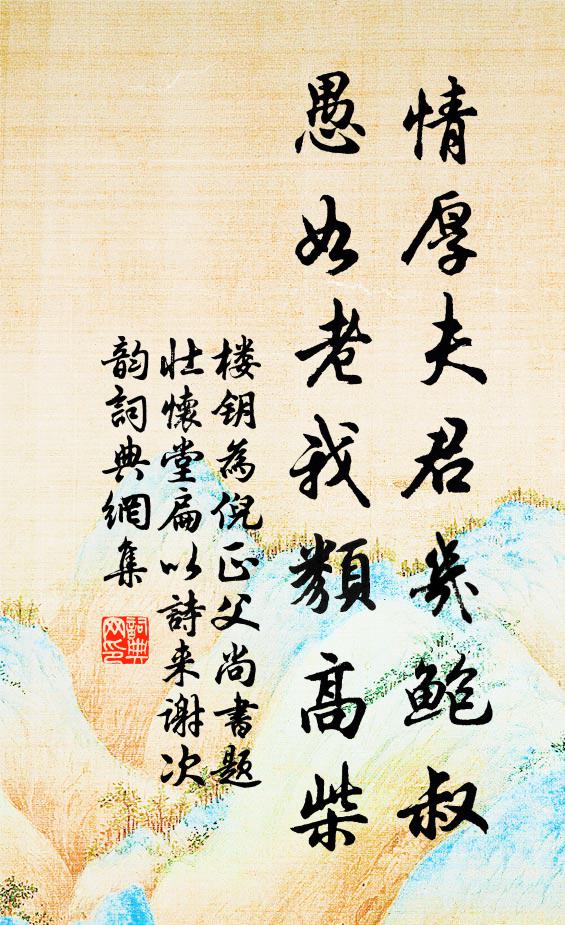 情厚夫君几鲍叔
愚如老我類高柴
楼钥為倪正父尚書題
壮懷堂扁以詩来谢次
韵詞典網集
詞典网印